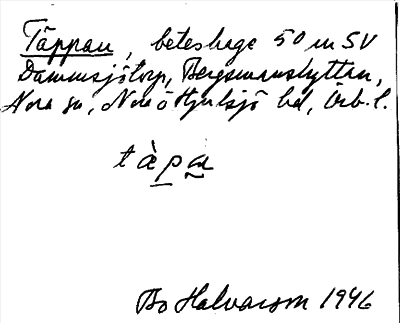 Täppan, beteshage 50 m SV
Dammsjötorp, Bergsmanshyttan,
Nora sn, Nora o Hjulsjö bd, Örb. l.
tàpa
Bo Halvarson 1946